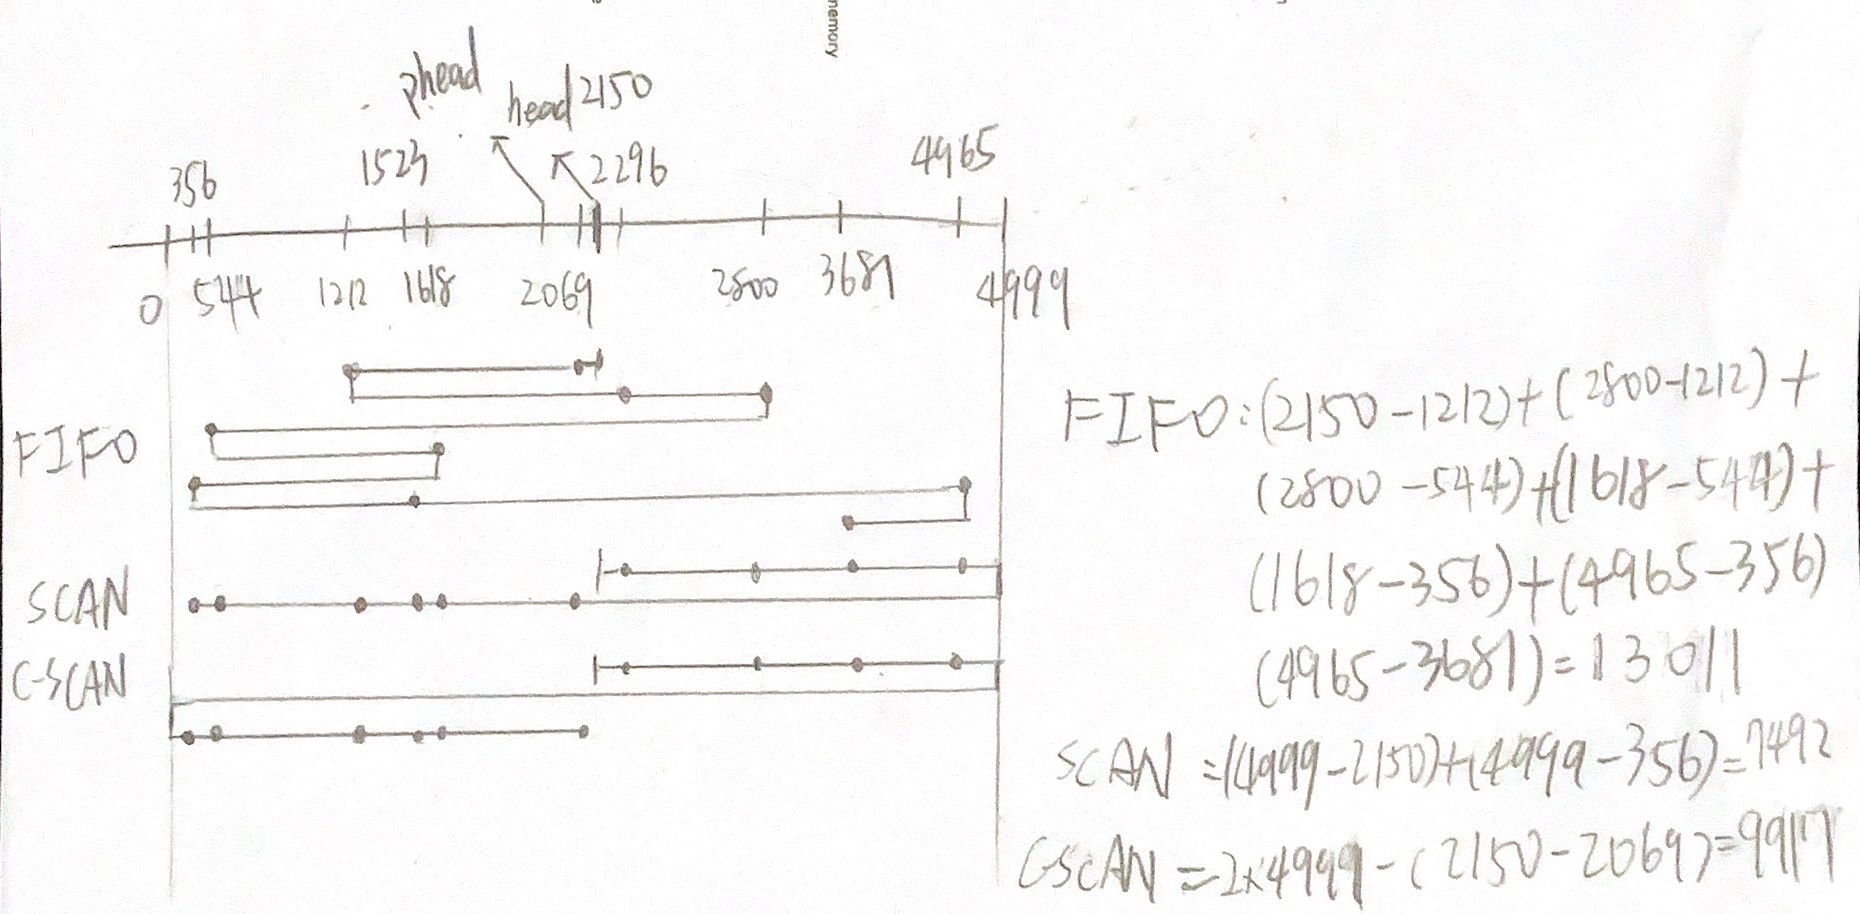 memory
phead
head 2150
356 1523 2296 4965
0 544 1212 1618 2069 2800 3681 4999
FIFO
SCAN
C-SCAN
FIFO:(2150-1212)+(2800-1212)+
(2800-544)+(1618-544)+
(1618-356)+(4965-356)
(4965-3681)=13011
SCAN =(4999-2150)+(4999-356)=7492
C-SCAN =2×4999-(2150-2069)=9917